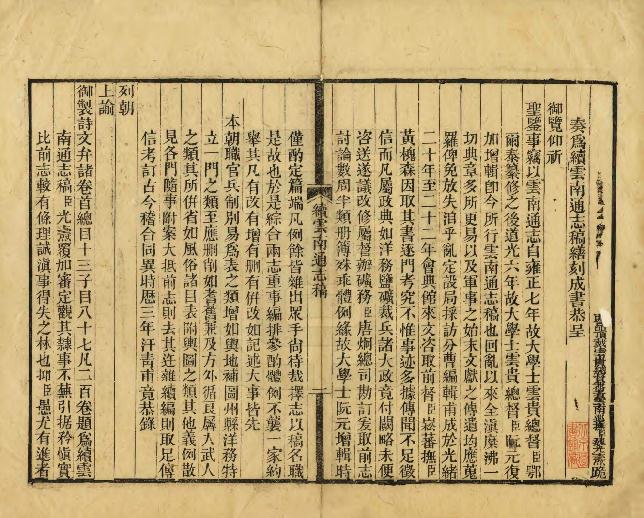 奏爲續雲南通志稿繕刻成書恭呈
御覽仰祈
聖鑒事竊以雲南通志自雍正七年故大學士雲貴總督臣鄂
爾泰纂修之後道光六年故大學士雲貴總督臣阮元復
加增輯卽今所行雲南通志稿也回亂以來全滇糜沸一
切典章多所更易以及軍事之始末文獻之傳遺均應蒐
羅俾免放失洎乎亂定設局採訪分曹編輯甫成於光緒
二十年至二十二年會典館來文咨取前督臣崧蕃撫臣
黃槐森因取其書逐門考究不惟事迹多據傳聞不足徵
信而凡屬政典如洋務鹽礦裁兵諸大政竟付闕略未便
咨送遂議改修屬督辦礦務臣唐炯總司勘訂爰取前志
討論數周半類册簿殊乖體例緣故大學士阮元增輯時
續雲南通志稿
一
僅酌定篇端凡例餘皆雖出眾手尙待裁擇志以稿名職
是故也於是綜合兩志重事編排參酌體例不襲一家約
舉其凡有改有增有删有併改如記連大事皆先
本朝職官兵制別易爲表之類增如輿地補圖州縣洋務特
立一門之類至應删削如耆舊兼及方外循良屬大武人
之類其所併省如風俗諸目表附輿圖之類其他義例散
見各門隨事附案大抵前志則去其迕雜續編則取足傳
信考訂古今稽合同異時歷三年汗靑甫竟恭錄
列朝
上諭
御製詩文弁諸卷首總目十三子目八十七凡二百卷題爲續雲
南通志稿臣光燾覆加審定觀其隸事不蕪引据矜愼實
比前志較有條理誠滇事得失之林也抑臣愚尤有進者